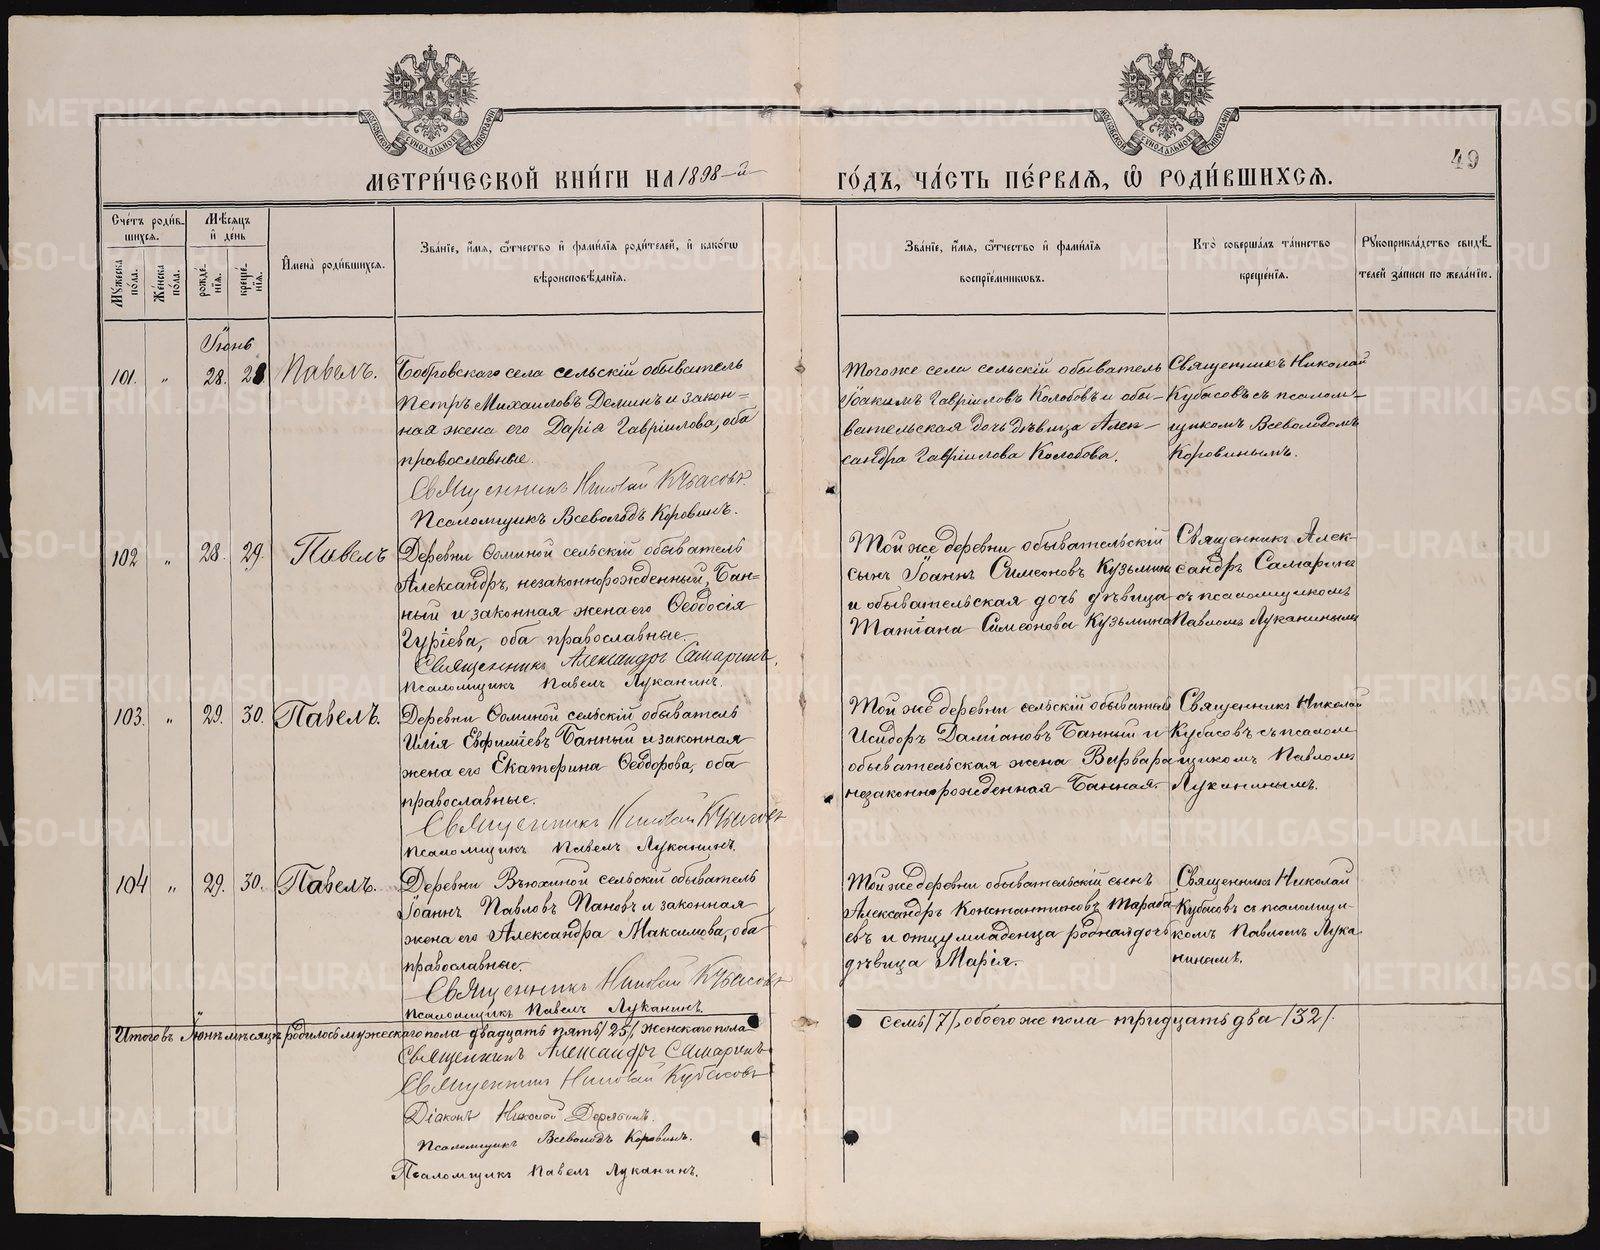 МЕТРИ́ЧЕСКОЙ КНИ́ГИ НА 1898-й
ГО́ДЪ, ЧА́СТЬ ПЕ́РВАЯ, Ѡ҆ РОДИ́ВШИХСЯ.
49
Сче́тъ роди́в-
шихся.
Мѣ́сяцъ
и҆ де́нь
Мꙋ́жеска по́ла.
Же́нска по́ла.
рожде́-
нїя.
креще́-
нїя.
И҆мена̀ роди́вшихся.
Зва́нїе, и҆́мя, ѻ҆́тчество и҆ фами́лїя роди́телей, и҆ како́гѡ
вѣроисповѣ́данїя.
Зва́нїе, и҆́мя, ѻ҆́тчество и҆ фами́лїя
воспрїе́мникѡвъ.
Кто̀ соверша́лъ та́инство
креще́нїя.
Рꙋкоприкла́дство свидѣ́-
телей за́писи по жела́нїю.
Іюнь
101. „ 28. 28 Павелъ.
Бобровскаго села сельскій обыватель
Петръ Михаиловъ Деминъ и закон=
ная жена его Дарія Гавріилова, оба
православные.
Священникъ Николай Кубасовъ.
Псаломщикъ Всеволодъ Коровинъ.
Тогоже села сельскій обыватель
Іоакимъ Гавріиловъ Колобовъ и обы-
вательская дочь дѣвица Алек-
сандра Гавріилова Колобова.
Священникъ Николай
Кубасовъ съ псалом-
щикомъ Всеволодомъ
Коровинымъ.
102 „ 28. 29. Павелъ
Деревни Ѳоминой сельскій обыватель
Александръ, незаконнорожденный, Бан=
ный и законная жена его Ѳеодосія
Гуріева, оба православные.
Священникъ Александръ Самаринъ.
Псаломщикъ Павелъ Луканинъ.
Той же деревни обывательскій
сынъ Іоаннъ Симеоновъ Кузьминъ
и обывательская дочь дѣвица
Татіана Симеонова Кузьмина
Священникъ Алек-
сандръ Самаринъ
съ псаломщикомъ
Павломъ Луканинымъ
103. „ 29. 30. Павелъ.
Деревни Ѳоминой сельскій обыватель
Илія Евфиміевъ Банный и законная
жена его Екатерина Ѳеодорова, оба
православные.
Священникъ Николай Кубасовъ
Псаломщикъ Павелъ Луканинъ.
Той же деревни сельскій обыватель
Исидоръ Даміановъ Банный и
обывательская жена Варвара
незаконнорожденная Банная.
Священникъ Николай
Кубасовъ съ псалом
щикомъ Павломъ
Луканинымъ.
104 „ 29. 30. Павелъ.
Деревни Вьюхиной сельскій обыватель
Іоаннъ Павловъ Пановъ и законная
жена его Александра Максимова, оба
православные.
Священникъ Николай Кубасовъ
Псаломщикъ Павелъ Луканинъ.
Той же деревни обывательскій сынъ
Александръ Константиновъ Тараба
евъ и отцу младенца родная дочь
дѣвица Марія.
Священникъ Николай
Кубасовъ съ псаломщи-
комъ Павломъ Лука
нинымъ.
Итого въ Іюнѣ мѣсяцѣ родилось мужескаго пола двадцать пять /25/, женскаго пола
семь /7/, обоего же пола тридцать два /32/.
Священникъ Александръ Самаринъ
Священникъ Николай Кубасовъ
Діаконъ Николай Дерябинъ.
Псаломщикъ Всеволодъ Коровинъ.
Псаломщикъ Павелъ Луканинъ.